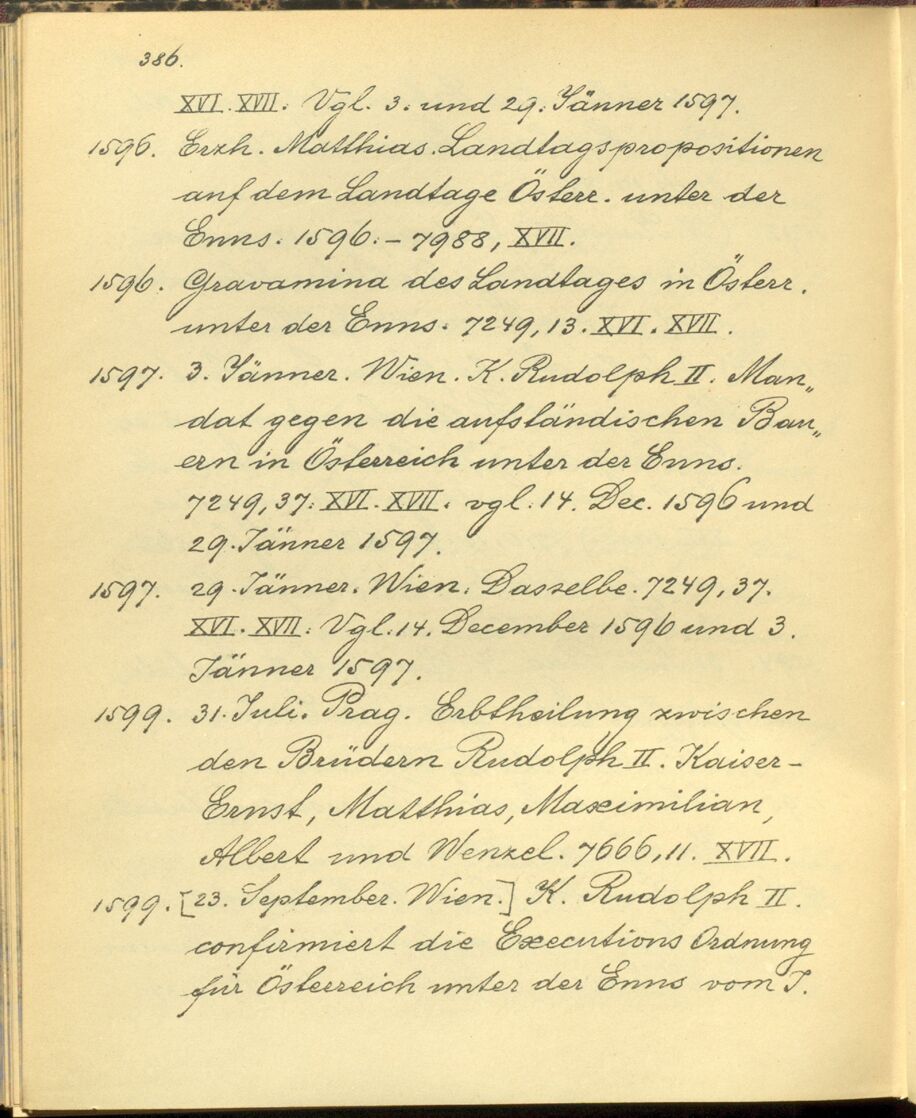 386.
XVI. XVII. Vgl. 3. und 29. Jänner 1597.
1596. Erzh. Matthias. Landtagspropositionen
auf dem Landtage Österr. unter der
Enns. 1596. – 7988, XVII.
1596. Gravamina des Landtages in Österr.
unter der Enns. 7249, 13. XVI. XVII.
1597. 3. Jänner. Wien. K. Rudolph II. Man„
dat gegen die aufständischen Bau„
ern in Österreich unter der Enns.
7249, 37. XVI. XVII. vgl. 14. Dec. 1596 und
29. Jänner 1597.
1597. 29. Jänner. Wien. Dasselbe. 7249, 37.
XVI. XVII. Vgl. 14. December 1596 und 3.
Jänner 1597.
1599. 31. Juli. Prag. Erbtheilung zwischen
den Brüdern Rudolph II. Kaiser –
Ernst, Matthias, Maximilian,
Albert und Wenzel. 7666, 11. XVII.
1599. [23. September. Wien.] K. Rudolph II.
confirmiert die Executions Ordnung
für Österreich unter der Enns vom J.